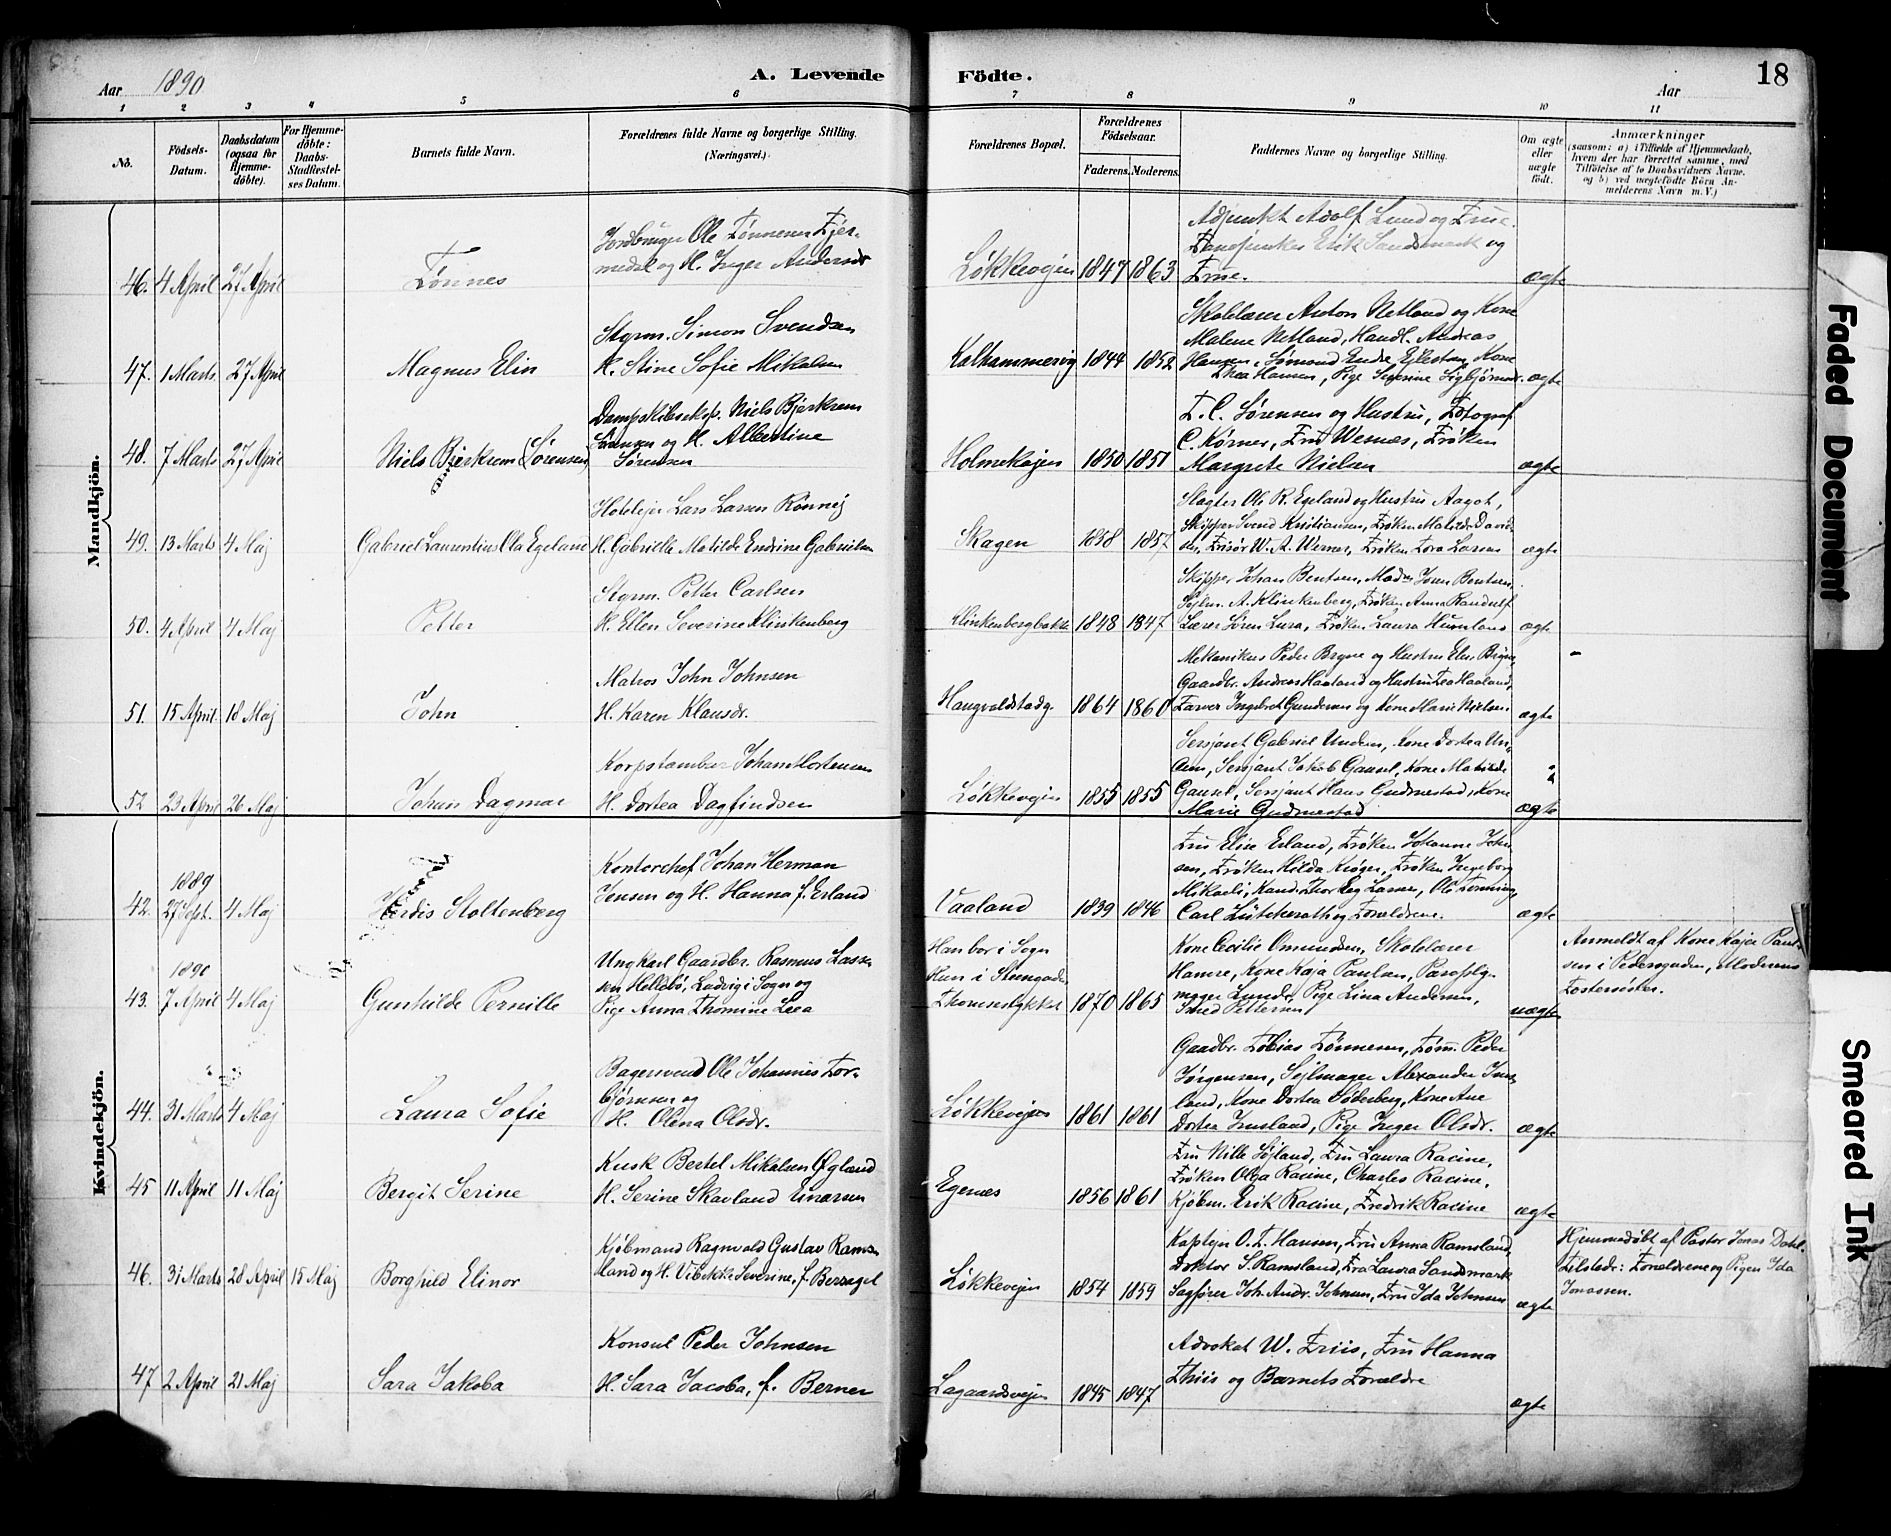 Aar 1890
A. Levende Födte.
Aar
18
1 2 3 4 5 6 7 8 9 10 11
No.
Födsels-
Datum.
Daabsdatum
(ogsaa for
Hjemme-
døbte).
For Hjemme-
døbte:
Daabs-
Stadfæstel-
ses Datum.
Barnets fulde Navn.
Forældrenes fulde Navne og borgerlige Stilling.
(Næringsvei.)
Forældrenes Bopæl.
Forældrenes
Födselsaar.
Faderens. Moderens.
Faddernes Navne og borgerlige Stilling.
Om ægte
eller
uægte
født.
Anmærkninger
(saasom: a) i Tilfælde af Hjemmedaab,
hvem der har forrettet samme, med
Tilföielse af to Daabsvidners Navne,
og b) ved uægtefødte Börn An-
melderens Navn m. V.)
Mandkjön.
46. 4 April 27 April
Tønnes
Jordbruger Ole Tønnesen Tjer-
medal og H. Inger Andersdr
Løkkevejen 1847 1863
Adjunkt Adolf Lund og Frue.
Erik Sandsmark og
Frue.
ægte
47. 1 Marts 27 April
Magnus Elin
Styrm. Simon Svendsen
H. Stine Sofie Mikalsen
Kalhammervig 1844 1852
Skolelærer Anton Netland og Kone
Malene Netland, Handl. Andreas
Hansen, Sømand Endre Egestan, Kone
Thea Hansen, Pige Severine Sigbjørnsdr.
ægte
48. 7 Marts 27 April
Niels Bjerkrem (Sørensen)
Dampskibsexp. Niels Bjerkrem
Sørensen og H. Albertine
Sørensen
Holmekajen 1850 1851
T. C. Sørensen og Hustru, Fotograf
C. Kørner, Fru Wernes, Frøken
Margrete Nielsen
ægte
49. 13 Marts 4 Maj
Gabriel Laurentius Ola Egeland
Hotelejer Lars Larsen Rønnej
H. Gabrielle Matilde Endrine Gabrielsen
Skagen 1838 1857
Slagter Ole R. Egeland og Hustru Aagot,
Skipper Svend Kristiansen, Frøken Matilde David-
sen, Frisør W. A. Werner, Frøken Tora Larsen
ægte
50. 4 April 4 Maj
Petter
Styrm. Petter Carlsen
H. Ellen Severine Klinkenberg
Klinkenbergbakke 1848 1847
Skipper Johan Bentsen, Mad. Bentsen,
Sejlm. A. Klinkenberg, Frøken Anna Randulf
Lærer Søren Lura, Frøken Laura
ægte
51. 15 April 18 Maj
John
Matros John Johnsen
H. Karen Klausdr.
Haugvaldstadg. 1864 1860
Mekanikus Peder Bryne og Hustru Elen Bryne,
Gaardbr. Andreas Haaland og Hustru Lea Haaland,
Farver Ingebret Gundersen og Kone Marie Nielsen
ægte
52 23 April 26 Maj
Johan Dagmar
Korpstambur Johan Mortensen
H. Dortea Dagfindsen
Løkkevejen 1855 1855
Sersjant Gabriel Undem, Kone Dortea Un-
dem, Sersjant Jakob Gausel, Kone Matilde
Gausel, Sersjant Hans Gudmestad, Kone
Marie Gudmestad
ægte
Kvindekjön.
42. 1889
27 Sept. 4 Maj
Herdis Stoltenberg
Kontorchef Johan Herman
Jensen og H. Hanna f. Erland
Vaaland 1839 1846
Fru Elise Erland, Frøken Johanne John-
sen, Frøken Hilda Krøger, Frøken Ingeborg
Mikaeli, Kand. Thor Lassen, Ole
Carl Lütcherath og Forældrene.
ægte
43. 1890
7 April 4 Maj
Gunhilde Pernille
Ungkarl Gaardbr. Rasmus Lasse-
sen Hellebø, Ladvig i Sogn og
Pige Anna Thomine Leea
Han bor i Sogn
Hun i Steengaden
Thomsestykket 1870 1865
Kone Cecilie Omundsen, Skolelærer
Hamre, Kone Kaja Paulsen, Paraply-
mager Lunde, Pige Lina Andersen,
Smed Pettersen
uægte
Anmeldt af Kone Kaja Paul-
sen i Pedersgaden, Moderens
Fostersøster.
44. 31 Marts 4 Maj
Laura Sofie
Bagersvend Ole Johannes Tor-
bjørnsen og
H. Olena Olsdr.
Løkkevejen 1861 1861
Gaardbr. Tobias Tønnesen, Tøm. Peder
Jørgensen, Sejlmager Alexander Jøss-
land, Kone Dortea Söderberg, Kone Ane
Dortea Jøssland, Pige Inger Olsdr.
ægte
45 11 April 11 Maj
Bergit Serine
Kusk Bertel Mikalsen Øgland
H. Serine Skavland Einarsen
Egenes 1856 1861
Fru Nille Sjøland, Fru Laura Racine,
Frøken Olga Racine, Charles Racine,
Kjøbm. Erik Racine, Fredrik Racine
ægte
46. 31 Marts 28 April 15 Maj
Borghild Elinor
Kjøbmand Ragnvald Gustav Rams-
land og H. Vibekke Severine, f. Bersagel
Løkkevejen 1854 1859
Kaptejn O. T. Hansen, Fru Anna Ramsland,
Doktor S. Ramsland, Fru Laura Sandsmark
Sagfører Joh. Andr. Johnsen, Fru Ida Johnsen
ægte
Hjemmedøbt af Pastor Jonas Dahl.
Tilstede: Forældrene og Pigen Ida
Jonassen.
47 2 April 21 Maj
Sara Jakoba
Konsul Peder Johnsen
H. Sara Jacoba, f. Berner
Lagaardsvejen 1845 1847
Advokat W. Friis, Fru Hanna
Thiis og Barnets Forældre
ægte
Faded Document
Smeared Ink